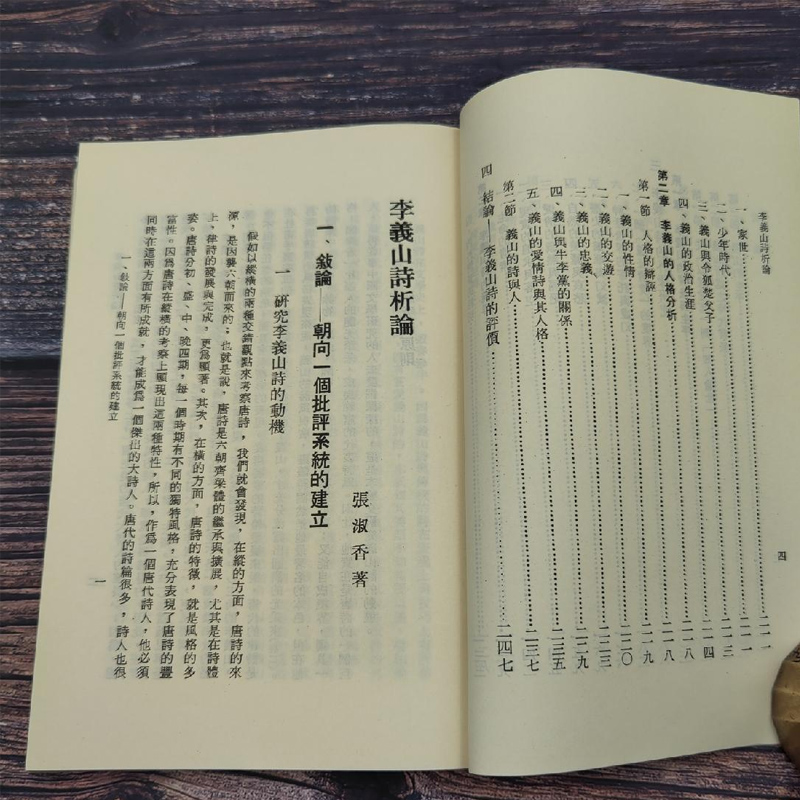 李義山詩析論
四
一、家世……二一一
二、少年時代……二一一
三、義山與令狐楚父子……二一三
四、義山的政治生涯……二一四
第二章 李義山的人格分析……二一八
第一節 人格的辯評……二一八
一、義山的性情……二一九
二、義山的交遊……二二〇
三、義山的忠義……二二三
四、義山與牛李黨的關係……二二九
五、義山的愛情詩與其人格……二三五
第二節 義山的詩與人……二三七
四 結論——李義山詩的評價……二四七
李義山詩析論
張淑香著
一、敍論——朝向一個批評系統的建立
一 研究李義山詩的動機
假如以縱橫的兩種交錯觀點來考察唐詩，我們就會發現，在縱的方面，唐詩的來
源，是因襲六朝而來的；也就是說，唐詩是六朝齊梁體的繼承與擴展，尤其是在詩體
上，律詩的發展與完成，更爲顯著。其次，在橫的方面，唐詩的特徵，就是風格的多
姿。唐詩分初、盛、中、晚四期，每一個時期有不同的獨特風格，充分表現了唐詩的豐
富性。因爲唐詩在縱橫的考察上顯現出這兩種特性，所以，作爲一個唐代詩人，他必須
同時在這兩方面有所成就，才能成爲一個傑出的大詩人。唐代的詩論很多，詩人也很
一、敍論——朝向一個批評系統的建立
一